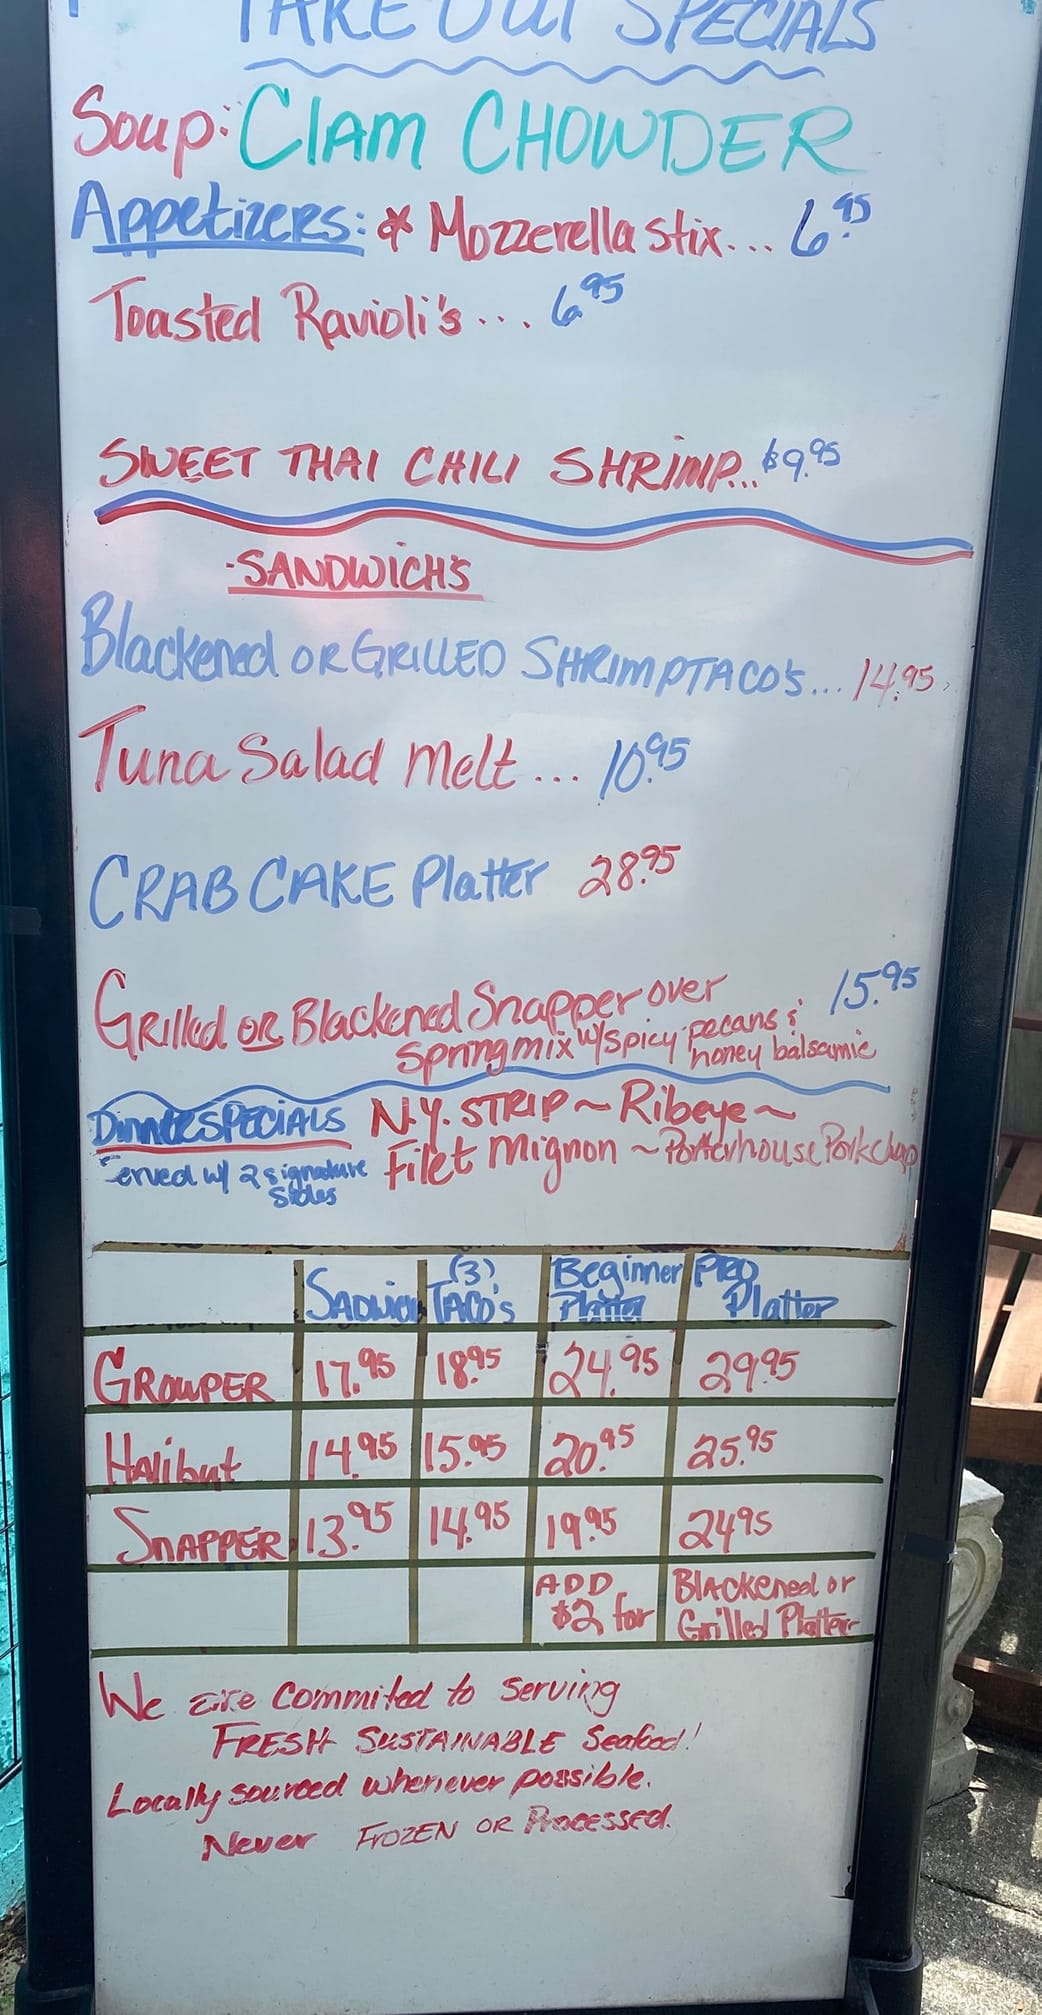 TAKE OUT SPECIALS
Soup: Clam CHOWDER
Appetizers: * Mozzerella Stix... 6.95
Toasted Ravioli's... 6.95
SWEET THAI CHILI SHRIMP... $9.95
-SANDWICH'S
Blackened OR GRILLED SHRIMP TACO'S... 14.95
Tuna Salad Melt... 10.95
CRAB CAKE Platter 28.95
Grilled OR Blackened Snapper over 15.95
Spring mix w/ spicy pecans &
honey balsamic
Dinner SPECIALS N.Y. STRIP ~ Ribeye ~
Served w/ 2 signature Filet Mignon ~ Porterhouse Pork chop
Sides
SADWICH (3) TACO'S Beginner Platter PRO Platter
GROUPER 17.95 18.95 24.95 29.95
Halibut 14.95 15.95 20.95 25.95
SNAPPER 13.95 14.95 19.95 24.95
ADD $2 for Blackened or Grilled Platter
We are commited to serving
FRESH SUSTAINABLE Seafood!
Locally sourced whenever possible.
Never FROZEN OR Processed.